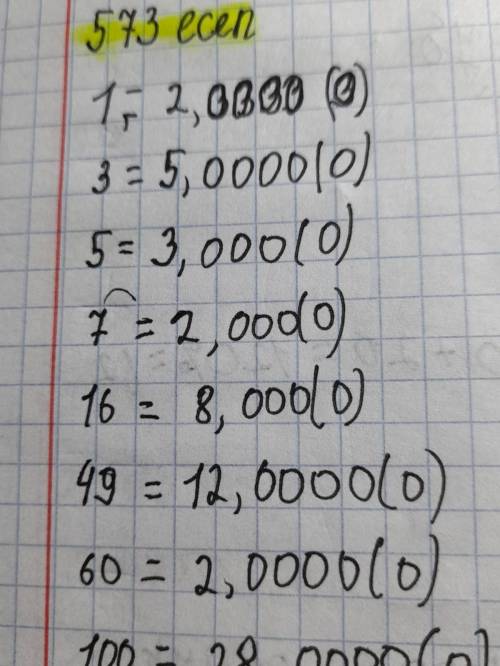 573 есеп
1 = 2,0000 (0)
3 = 5,0000(0)
5 = 3,000(0)
7 = 2,000(0)
16 = 8,000(0)
49 = 12,0000(0)
60 = 2,0000(0)
100 = 28,0000(0)